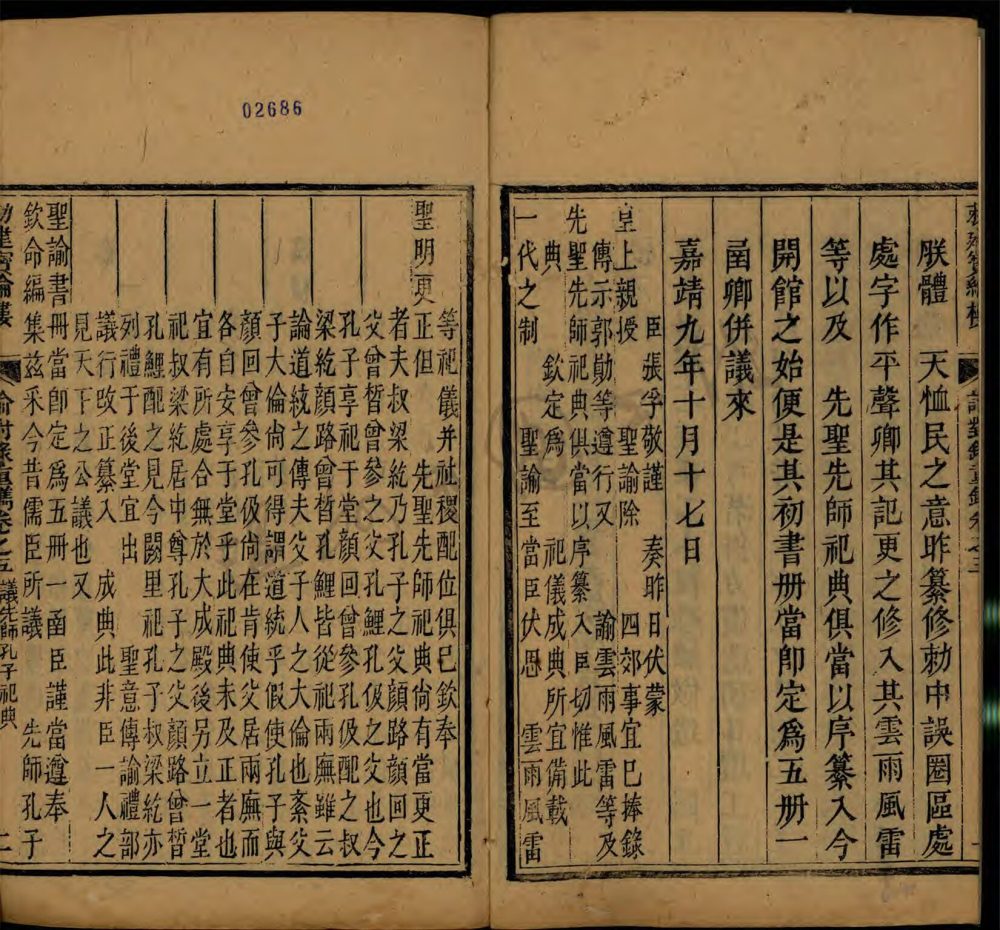 朕體　天恤民之意昨纂修勑中誤圈區處
處字作平聲卿其記更之修入其雲雨風雷
等以及　先聖先師祀典俱當以序纂入今
開館之始便是其初書册當卽定爲五册一
函卿併議來
嘉靖九年十月十七日
臣張孚敬謹　奏昨日伏蒙
皇上親授　聖諭除　四郊事宜巳捧錄
傳示郭勛等遵行又　諭雲雨風雷等及
先聖先師祀典俱當以序纂入臣切惟此
典　欽定爲　祀儀成典所宜備載
一代之制　聖諭至當臣伏思　雲雨風雷
02686
等祀儀并社稷配位俱巳欽奉
聖明更正但　先聖先師祀典尚有當更正
者夫叔梁紇乃孔子之父顏路顏回之
父曾晳曾參之父孔鯉孔伋之父也今
孔子享祀于堂顏回曾參孔伋配之叔
梁紇顏路曾晳孔鯉皆從祀兩廡雖云
論道統之傳夫父子人之大倫也紊父
子大倫尚可得謂道統乎假使孔子與
顏回曾參孔伋尚在肯使父居兩廡而
各自安享于堂乎此祀典未及正者也
宜有所處合無於大成殿後另立一堂
祀叔梁紇居中尊孔子之父顏路曾晳
孔鯉配之見今闕里祀孔子叔梁紇亦
列禮于後堂宜出　聖意傳諭禮部
議行改正纂入　成典此非臣一人之
見天下之公議也又
聖諭書册當卽定爲五册一函臣謹當遵奉
欽命編集兹采今昔儒臣所議　先師孔子
勅建寶綸樓　諭對錄重鐫卷之五　議先師孔子祀典　二